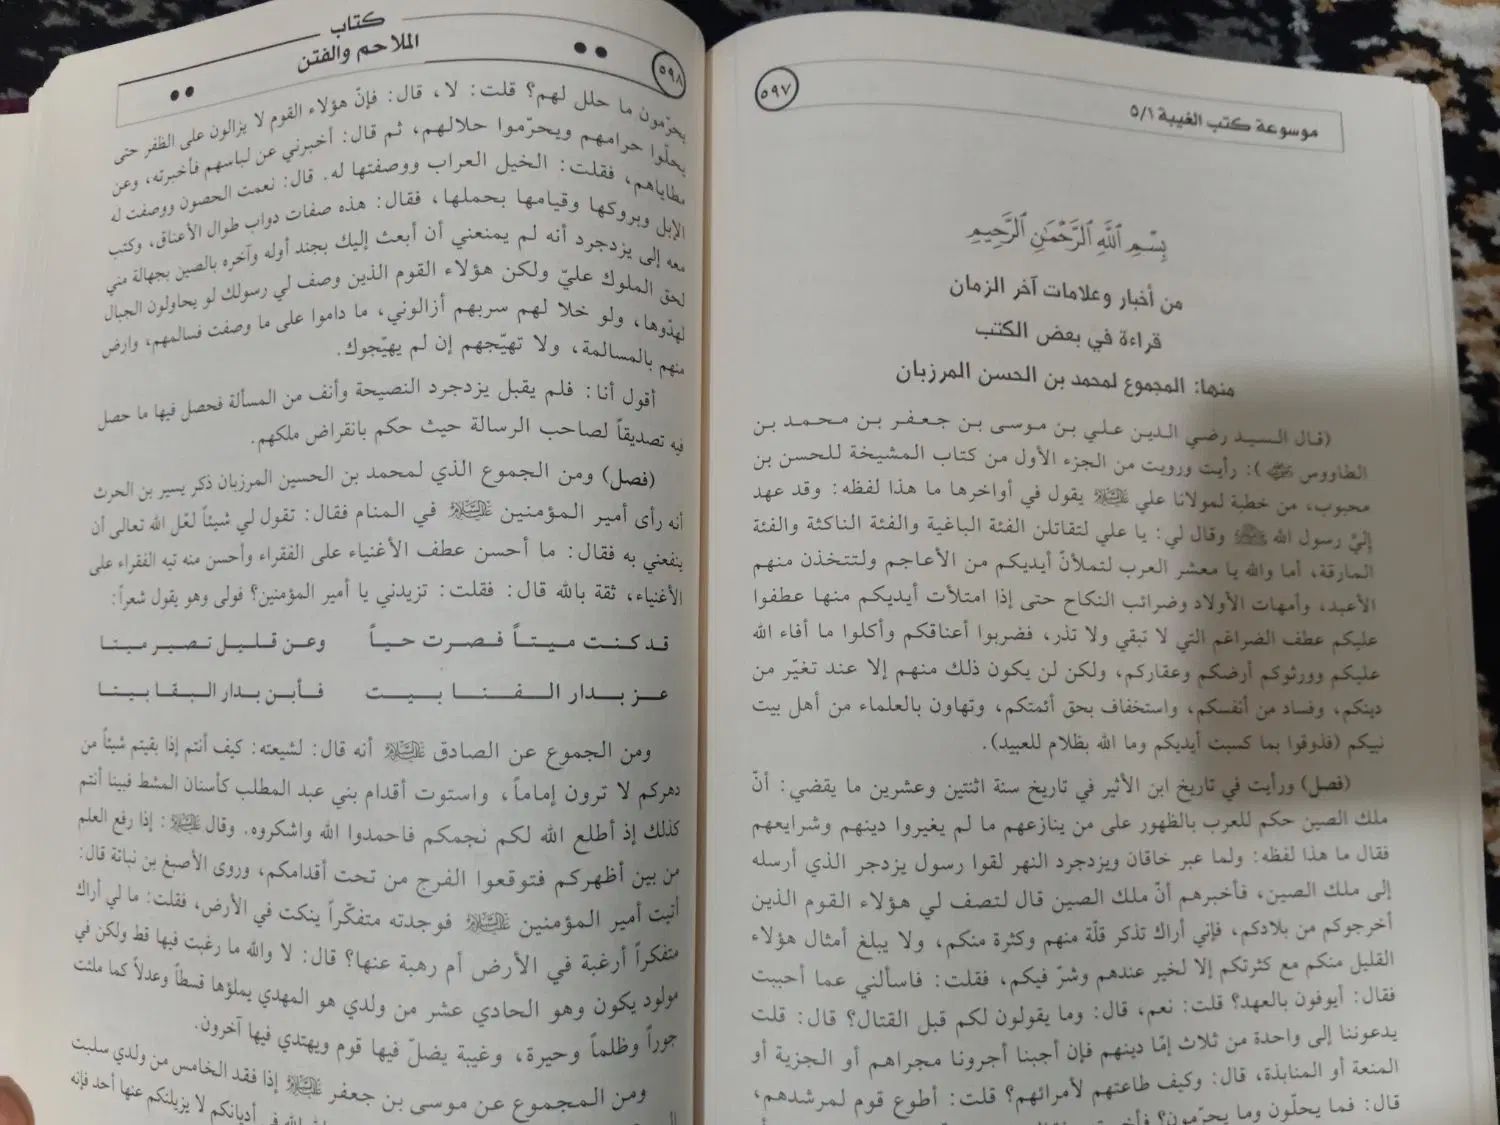 موسوعة كتب الغيبة ٥/١
٥٩٧
بسم الله الرحمن الرحيم
من أخبار وعلامات آخر الزمان
قراءة في بعض الكتب
منها: المجموع لمحمد بن الحسن المرزبان
(قال السيد رضي الدين علي بن موسى بن جعفر بن محمد بن
الطاووس): رأيت ورويت من الجزء الأول من كتاب المشيخة للحسن بن
محبوب، من خطبة لمولانا علي عليه السلام يقول في أواخرها ما هذا لفظه: وقد عهد
إليَّ رسول الله ﷺ وقال لي: يا علي لتقاتلن الفئة الباغية والفئة الناكثة والفئة
المارقة، أما والله يا معشر العرب لتملأنّ أيديكم من الأعاجم ولتتخذن منهم
الأعبد، وأمهات الأولاد وضرائب النكاح حتى إذا امتلأت أيديكم منها عطفوا
عليكم عطف الضراغم التي لا تبقي ولا تذر، فضربوا أعناقكم وأكلوا ما أفاء الله
عليكم وورثوكم أرضكم وعقاركم، ولكن لن يكون ذلك منهم إلا عند تغيّر من
دينكم، وفساد من أنفسكم، واستخفاف بحق أئمتكم، وتهاون بالعلماء من أهل بيت
نبيكم (فذوقوا بما كسبت أيديكم وما الله بظلام للعبيد).
(فصل) ورأيت في تاريخ ابن الأثير في تاريخ سنة اثنتين وعشرين ما يقضي: أنّ
ملك الصين حكم للعرب بالظهور على من ينازعهم ما لم يغيروا دينهم وشرايعهم
فقال ما هذا لفظه: ولما عبر خاقان ويزدجرد النهر لقوا رسول يزدجر الذي أرسله
إلى ملك الصين، فأخبرهم أنّ ملك الصين قال لتصف لي هؤلاء القوم الذين
أخرجوكم من بلادكم، فإني أراك تذكر قلّة منهم وكثرة منكم، ولا يبلغ أمثال هؤلاء
القليل منكم مع كثرتكم إلا لخير عندهم وشرّ فيكم، فقلت: فاسألني عما أحببت
فقال: أيوفون بالعهد؟ قلت: نعم، قال: وما يقولون لكم قبل القتال؟ قال: قلت
يدعوننا إلى واحدة من ثلاث إمّا دينهم فإن أجبنا أجرونا مجراهم أو الجزية أو
المنعة أو المنابذة، قال: وكيف طاعتهم لأمرائهم؟ قلت: أطوع قوم لمرشدهم،
قال: فما يحلّون وما يحرّمون؟
كتاب
الملاحم والفتن
٥٩٨
يحرّمون ما حلل لهم؟ قلت: لا، قال: فإنّ هؤلاء القوم لا يزالون على الظفر حتى
يحلّوا حرامهم ويحرّموا حلالهم، ثم قال: أخبرني عن لباسهم فأخبرته، وعن
مطاياهم، فقلت: الخيل العراب ووصفتها له. قال: نعمت الحصون ووصفت له
الإبل وبروكها وقيامها بحملها، فقال: هذه صفات دواب طوال الأعناق، وكتب
معه إلى يزدجرد أنه لم يمنعني أن أبعث إليك بجند أوله وآخره بالصين بجهالة مني
لحق الملوك عليّ ولكن هؤلاء القوم الذين وصف لي رسولك لو يحاولون الجبال
لهدّوها، ولو خلا لهم سربهم أزالوني، ما داموا على ما وصفت فسالمهم، وارض
منهم بالمسالمة، ولا تهيّجهم إن لم يهيّجوك.
أقول أنا: فلم يقبل يزدجرد النصيحة وأنف من المسألة فحصل فيها ما حصل
فيه تصديقاً لصاحب الرسالة حيث حكم بانقراض ملكهم.
(فصل) ومن الجموع الذي لمحمد بن الحسين المرزبان ذكر يسير بن الحرث
أنه رأى أمير المؤمنين عليه السلام في المنام فقال: تقول لي شيئاً لعّل الله تعالى أن
ينفعني به فقال: ما أحسن عطف الأغنياء على الفقراء وأحسن منه تيه الفقراء على
الأغنياء، ثقة بالله قال: فقلت: تزيدني يا أمير المؤمنين؟ فولى وهو يقول شعراً:
قد كنت ميتاً فصرت حياً وعن قليل تصير ميتا
عز بدار الفنا بيت فأبن بدار البقا بيتا
ومن الجموع عن الصادق عليه السلام أنه قال: لشيعته: كيف أنتم إذا بقيتم شيئاً من
دهركم لا ترون إماماً، واستوت أقدام بني عبد المطلب كأسنان المشط فبينا أنتم
كذلك إذ أطلع الله لكم نجمكم فاحمدوا الله واشكروه. وقال عليه السلام: إذا رفع العلم
من بين أظهركم فتوقعوا الفرج من تحت أقدامكم، وروى الأصبغ بن نباتة قال:
أتيت أمير المؤمنين عليه السلام فوجدته متفكّراً ينكت في الأرض، فقلت: ما لي أراك
متفكراً أرغبة في الأرض أم رهبة عنها؟ قال: لا والله ما رغبت فيها قط ولكن في
مولود يكون وهو الحادي عشر من ولدي هو المهدي يملؤها قسطاً وعدلاً كما ملئت
جوراً وظلماً وحيرة، وغيبة يضلّ فيها قوم ويهتدي فيها آخرون.
ومن المجموع عن موسى بن جعفر عليه السلام إذا فقد الخامس من ولدي سلبت
الله في أديانكم لا يزيلنكم عنها أحد فإنه